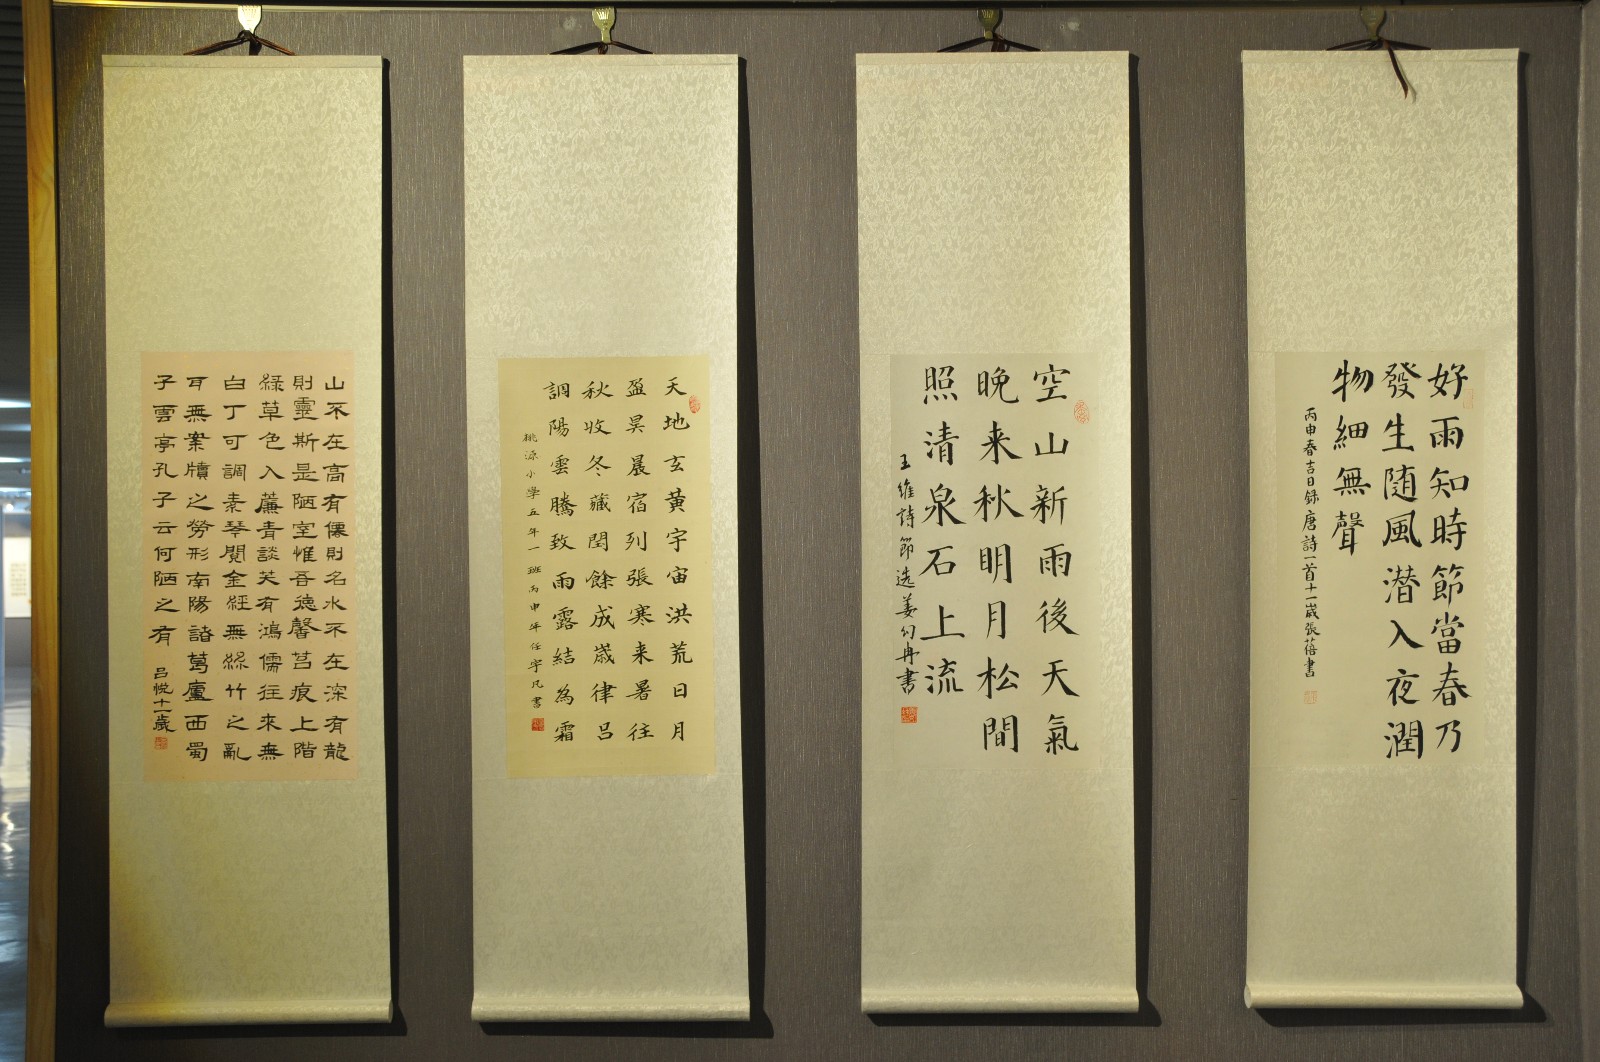 好雨知時節當春乃
發生随風潜入夜潤
物細無聲
丙申春吉日録唐詩一首十一歲張蓓書
空山新雨後天氣
晚来秋明月松間
照清泉石上流
王維詩節选姜幻冉書
天地玄黃宇宙洪荒日月
盈昃晨宿列張寒来暑往
秋收冬藏閏餘成歲律吕
調陽雲騰致雨露結為霜
桃源小學五年一班丙申年任宇凡書
山不在高有僊則名水不在深有龍
則靈斯是陋室惟吾德馨苔痕上階
綠草色入簾青談笑有鴻儒往來無
白丁可調素琴閱金經無絲竹之亂
耳無案牘之勞形南陽諸葛廬西蜀
子雲亭孔子云何陋之有
吕悦十一歲